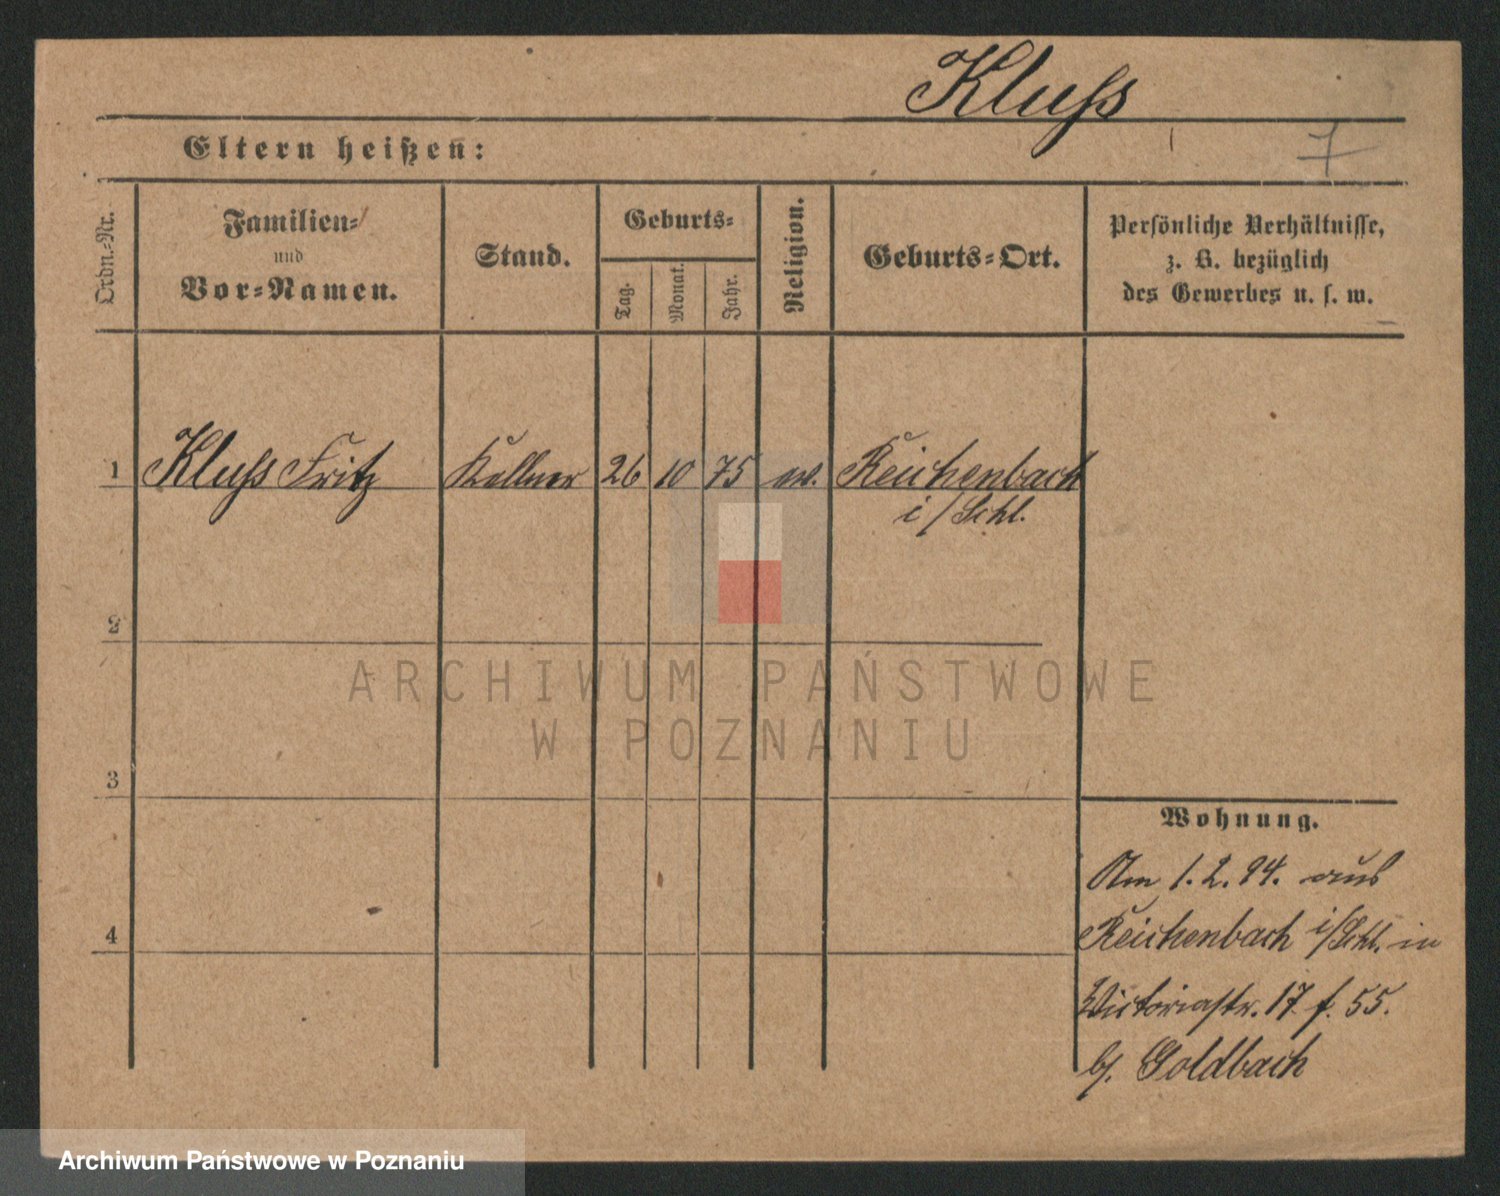 Kluſs
7
Eltern heißen:
Ordn.=Nr.
Familien=
und
Vor=Namen.
Stand.
Geburts=
Tag.
Monat.
Jahr.
Religion.
Geburts=Ort.
Perſönliche Verhältniſſe,
z. B. bezüglich
des Gewerbes u. ſ. w.
1 Kluſs Fritz Kellner 26 10 75 ev. Reichenbach
i/Schl.
2
3
4
Wohnung.
Am 1.2.94. aus
Reichenbach i/Schl. in
Victoriaſtr. 17 f. 55.
b/. Goldbach
ARCHIWUM PAŃSTWOWE
W POZNANIU
Archiwum Państwowe w Poznaniu